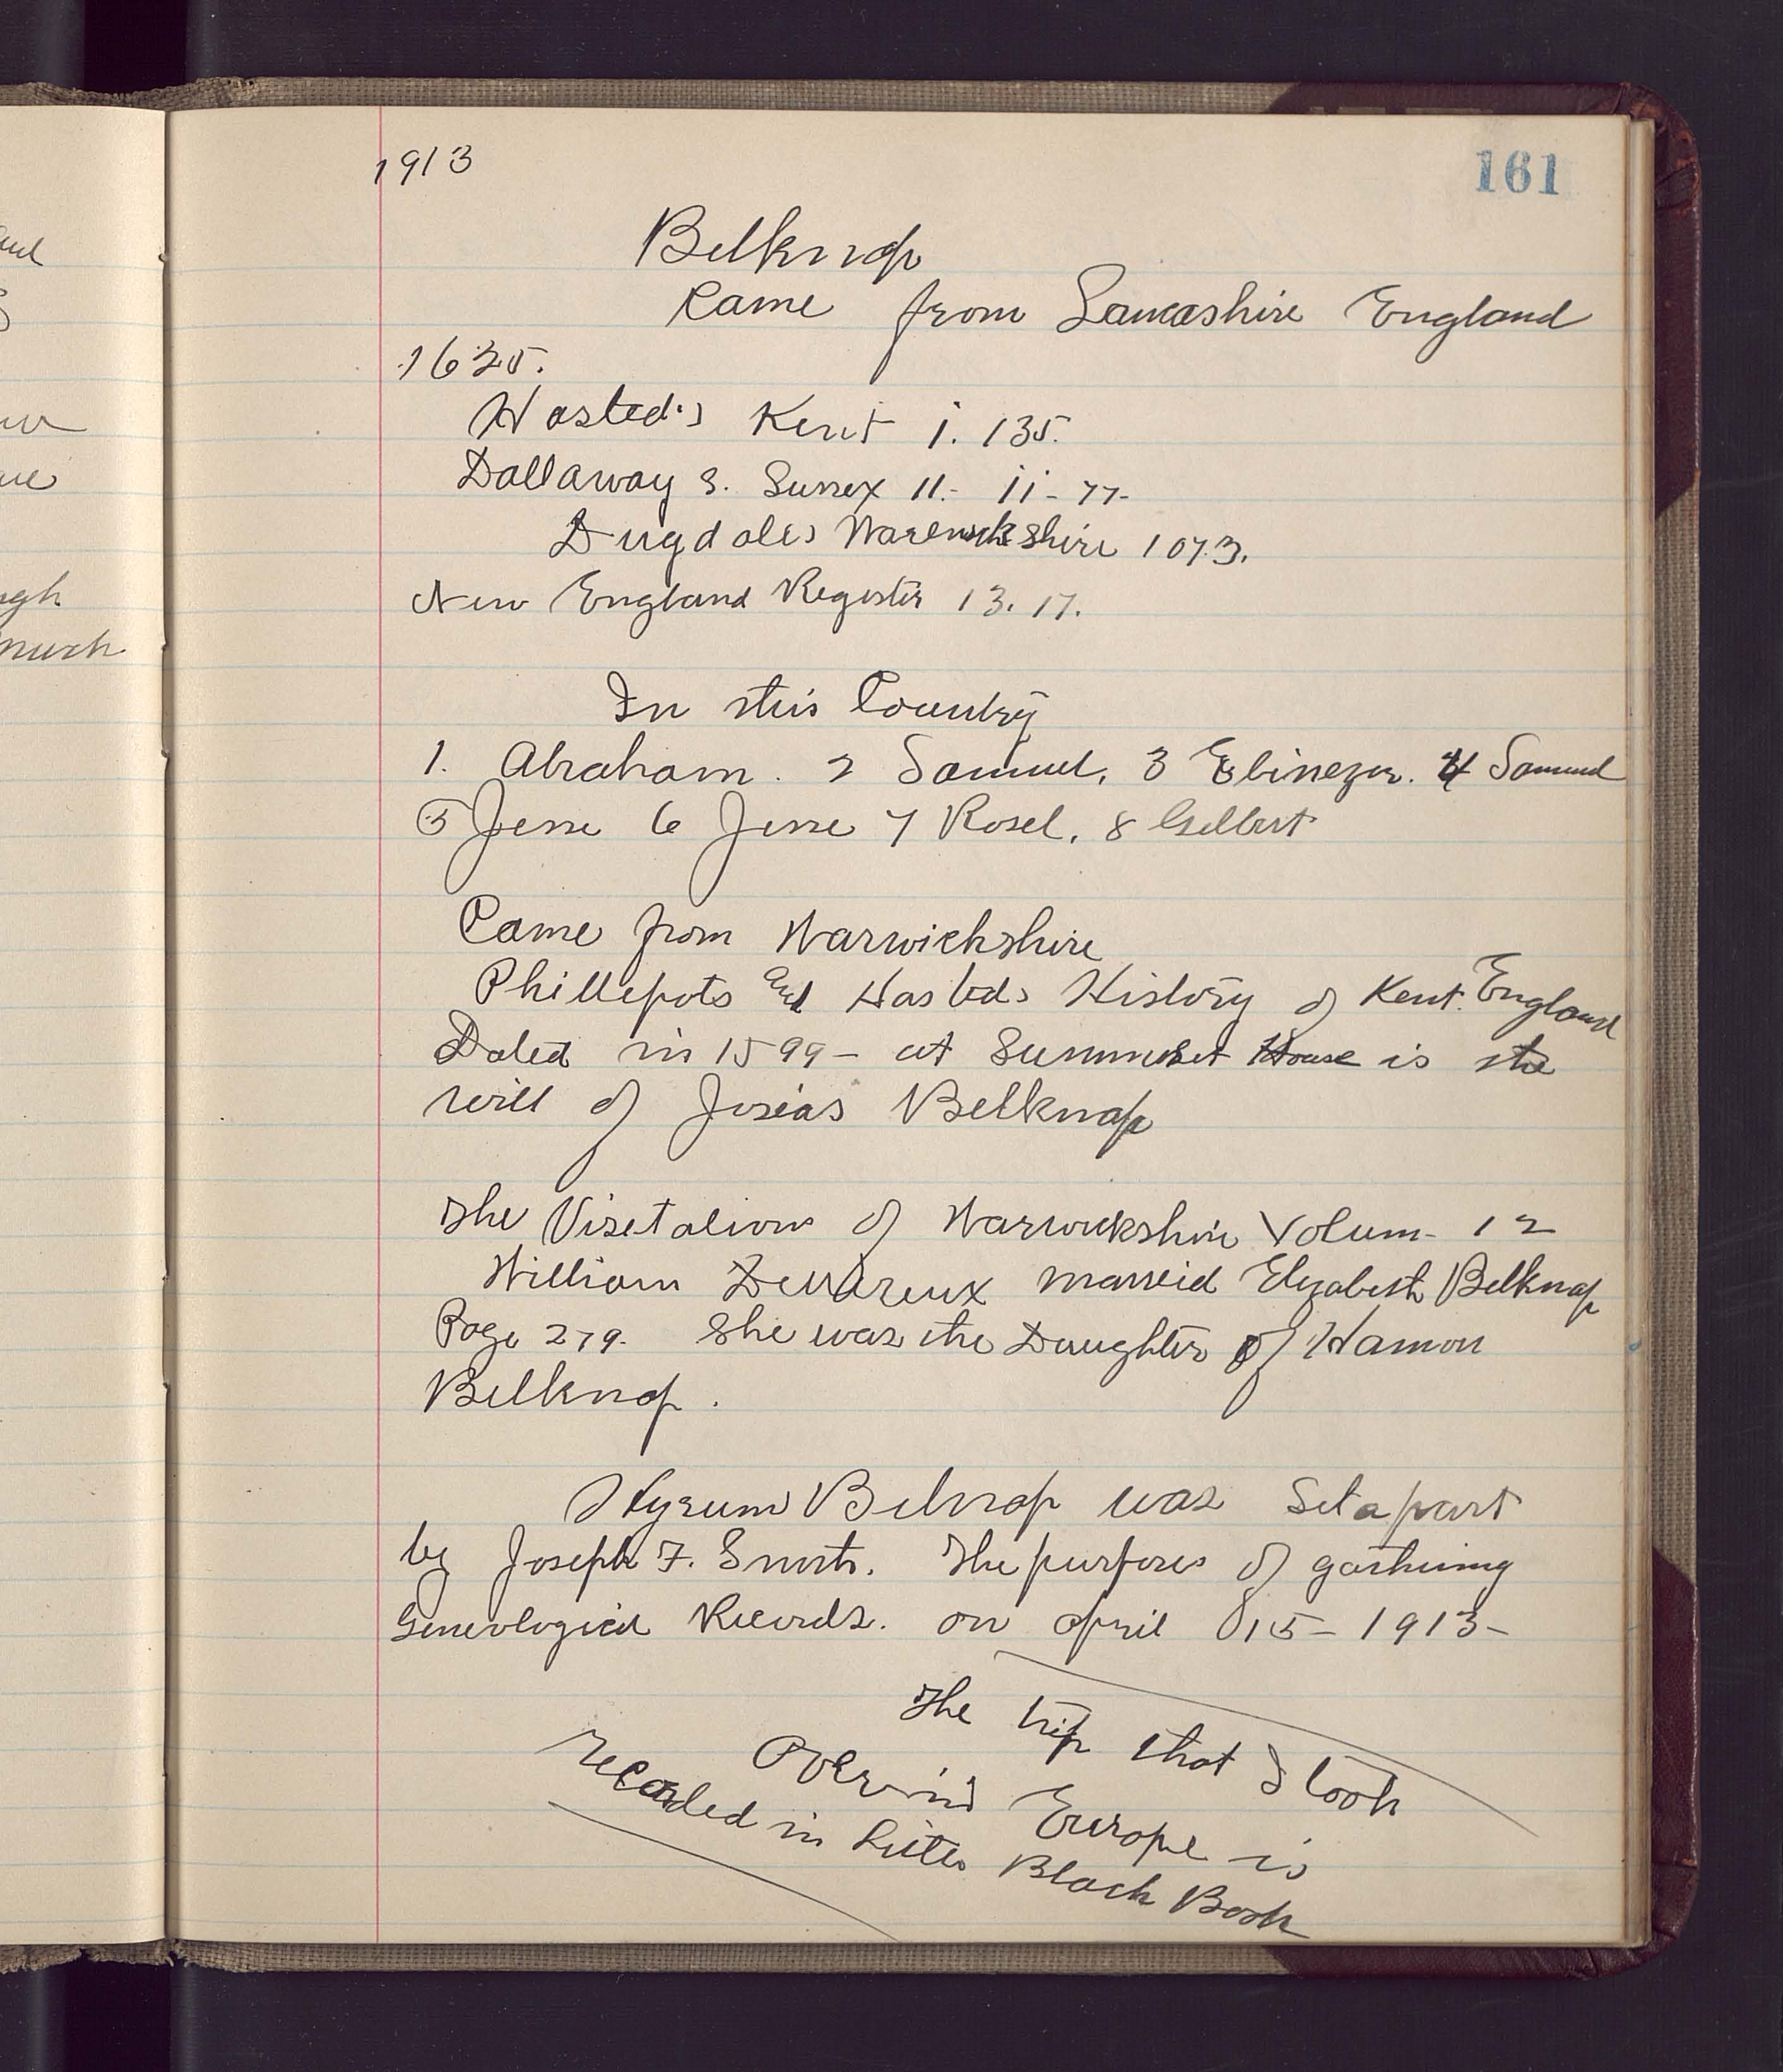 1913
161
Belknap
Came from Lancashire England
1635.
Hasted's Kent i. 135.
Dallaway s. Sussex 11.- ii- 77-
Dugdales Warenwickshire 1073.
New England Register 13. 17.
In this Country
1. Abraham. 2 Samuel, 3 Ebinezer. 4 Samuel
5 Jesse 6 Jesse 7 Rosel, 8 Gilbert
Came from Warwickshire
Phillepots and Hasteds History of Kent. England
Dated in 1599 - at Summerset House is the
will of Josias Belknap
The Visetations of Warwickshire Volum- 12
William Devereux marreid Elizabeth Belknap
Page 279. She was the Daughter of Hamon
Belknap.
Hyrum Belnap was Set apart
by Joseph F. Smith. The purposes of gathering
Geneological Records. on april 15 - 1913 -
The trip that I took
Over in Europe is
recorded in Little Black Book
much